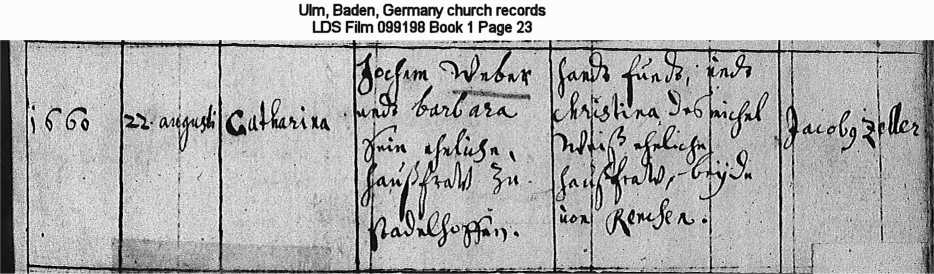 Ulm, Baden, Germany church records
LDS Film 099198 Book 1 Page 23
1660
22. augusti
Catharina
Jochem Weber
undt barbara
sein eheliche,
haußfraw zu
stadelhoffen.
hanß undt
Christina des michel
Weiß eheliche
haußfraw, beyde
von Renchen.
Jacobg Zeller